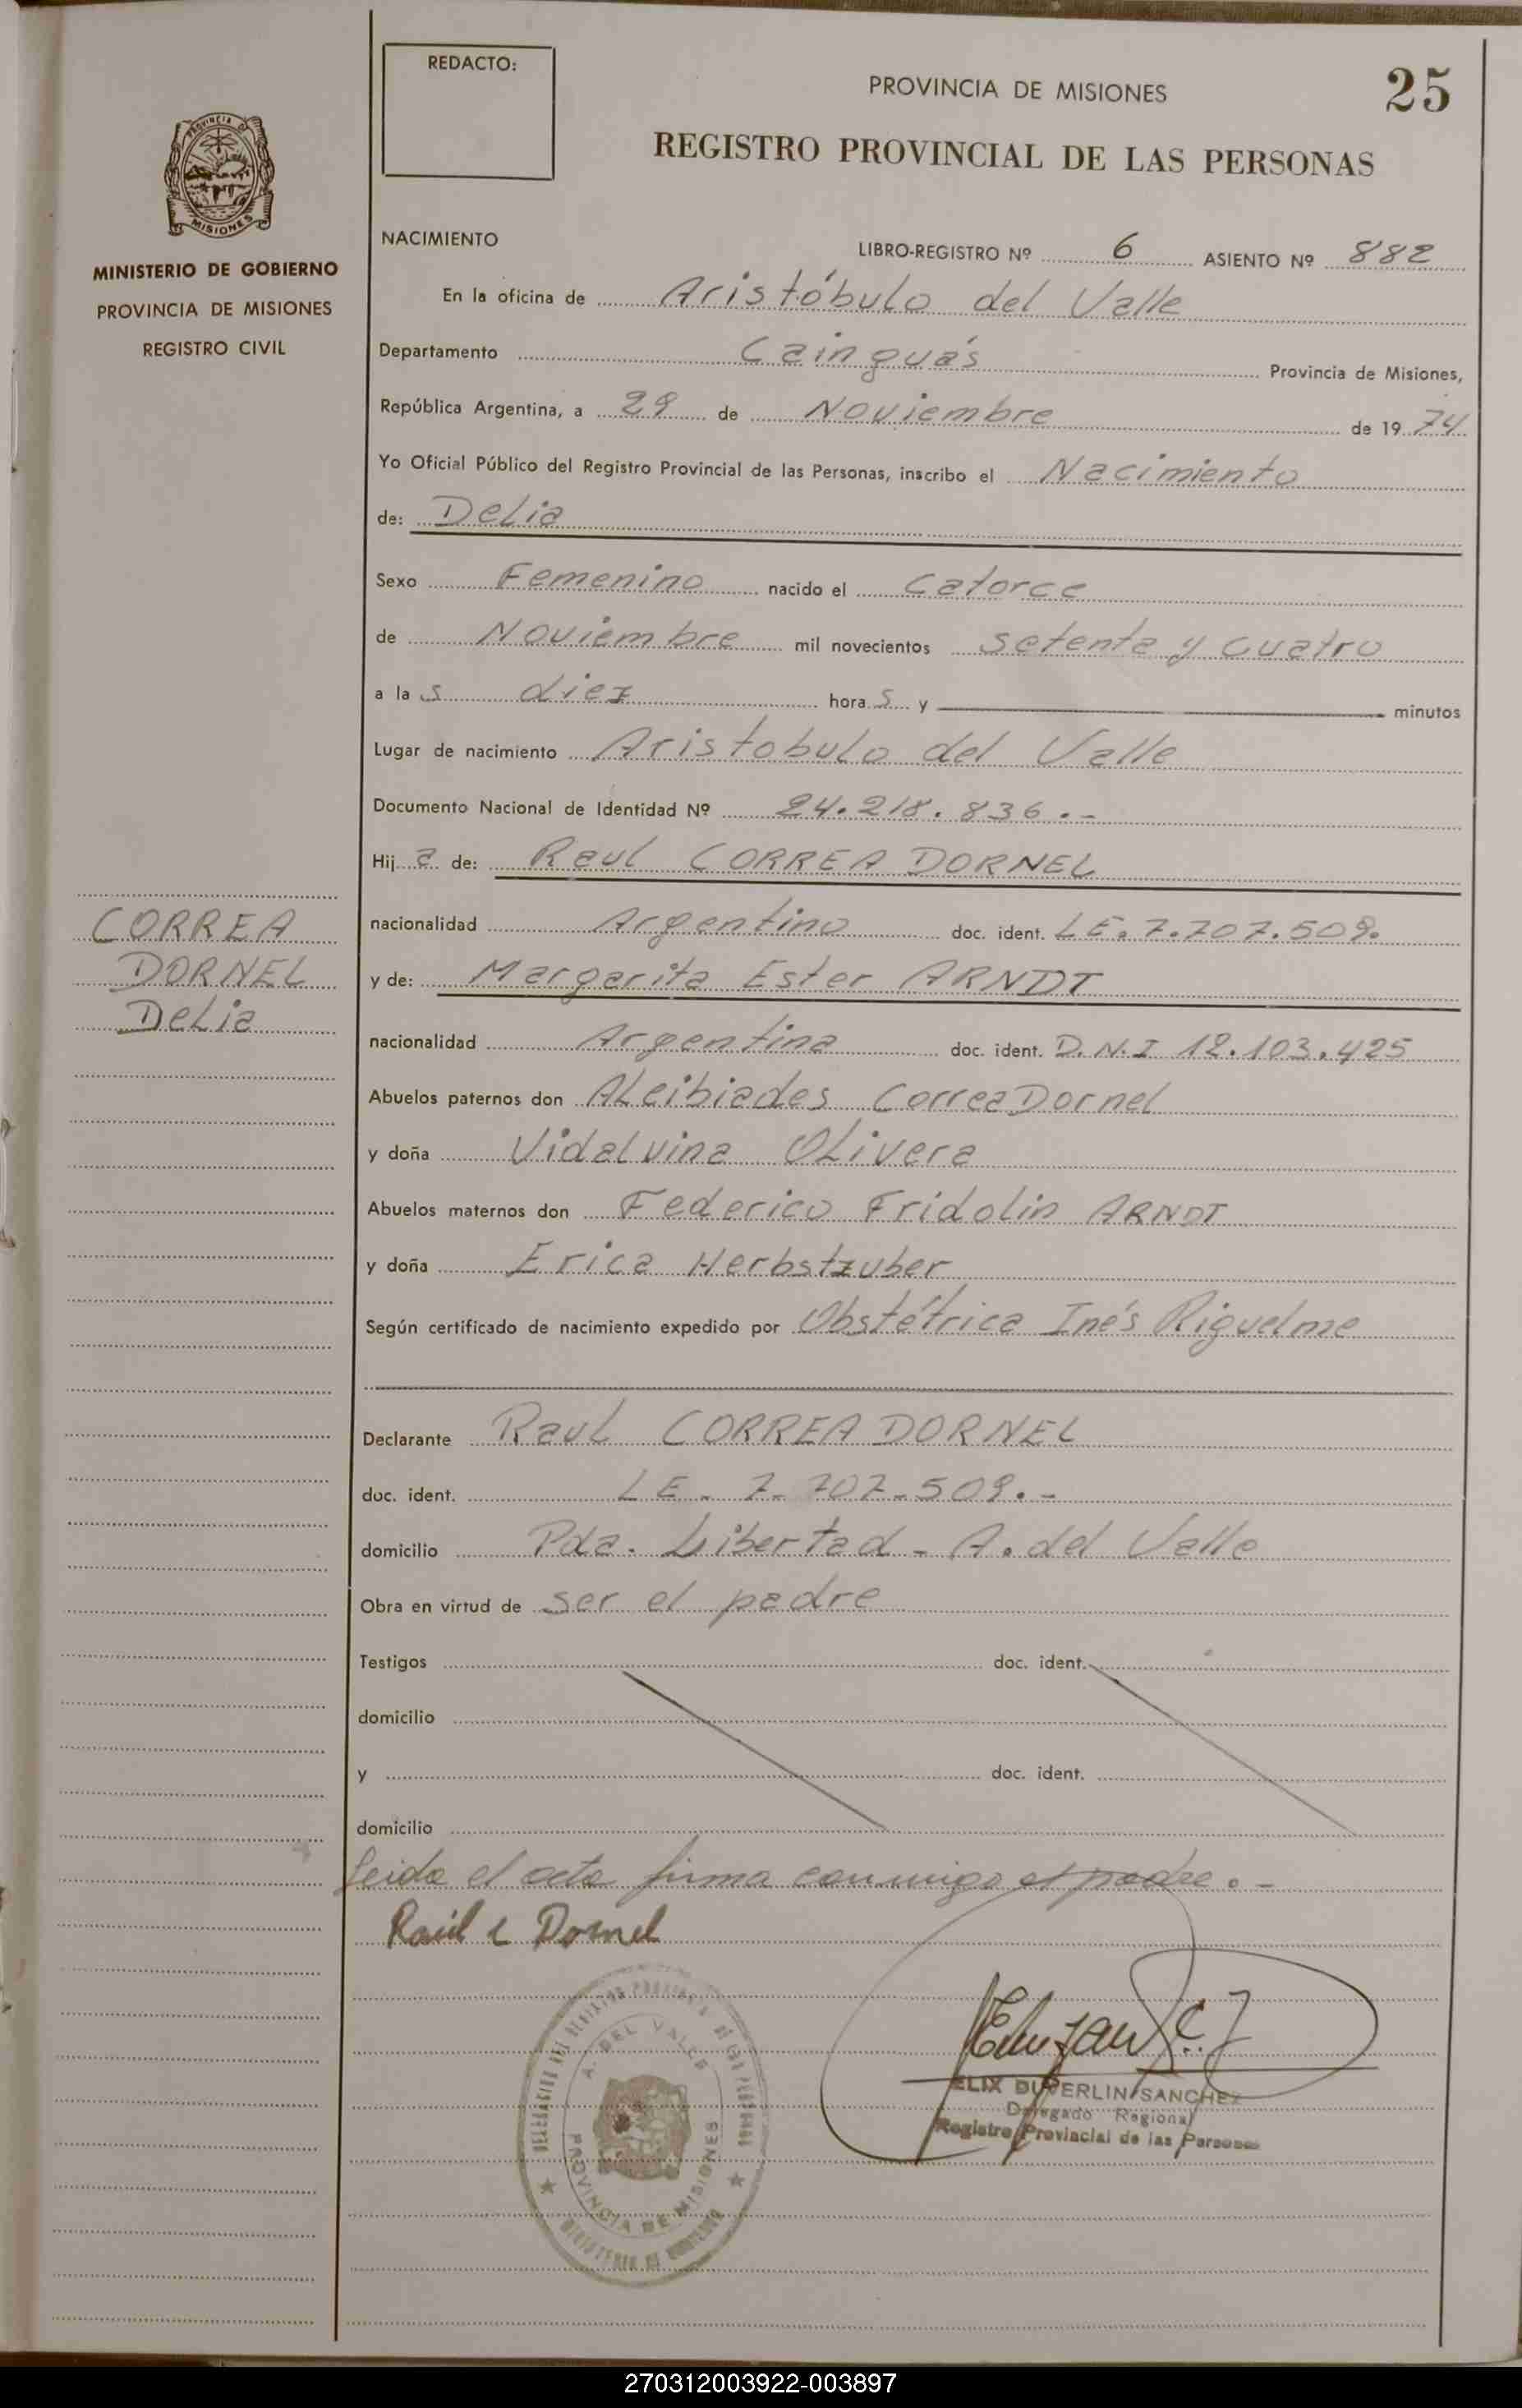 REDACTO:
PROVINCIA DE MISIONES
25
REGISTRO PROVINCIAL DE LAS PERSONAS
PROVINCIA DE
MISIONES
MINISTERIO DE GOBIERNO
PROVINCIA DE MISIONES
REGISTRO CIVIL
NACIMIENTO
LIBRO-REGISTRO Nº 6 ASIENTO Nº 882
En la oficina de Aristóbulo del Valle
Departamento Cainguás Provincia de Misiones,
República Argentina, a 29 de Noviembre de 19 74
Yo Oficial Público del Registro Provincial de las Personas, inscribo el Nacimiento
de: Delia
Sexo Femenino nacido el Catorce
de Noviembre mil novecientos setenta y cuatro
a la s diez hora s y minutos
Lugar de nacimiento Aristobulo del Valle
Documento Nacional de Identidad Nº 24.218.836.-
Hij a de: Raul CORREA DORNEL
nacionalidad Argentino doc. ident. LE. 7.707.509.
y de: Margarita Ester ARNDT
nacionalidad Argentina doc. ident. D.N.I 12.103.425
CORREA
DORNEL
Delia
Abuelos paternos don ALcibiades Correa Dornel
y doña Vidalvina Olivera
Abuelos maternos don Federico Fridolin ARNDT
y doña Erica Herbstzuber
Según certificado de nacimiento expedido por Obstétrica Inés Riguelme
Declarante Raul CORREA DORNEL
doc. ident. LE - 7-707-509.-
domicilio Pda. Libertad - A. del Valle
Obra en virtud de ser el padre
Testigos doc. ident.
domicilio
y doc. ident.
domicilio
Leida el acta firma conmigo el padre.-
Raúl C Dornel
ELIX DUVERLIN SANCHEZ
Delegado Regional
Registro Provincial de las Personas
A. DEL VALLE
PROVINCIA DE MISIONES
270312003922-003897